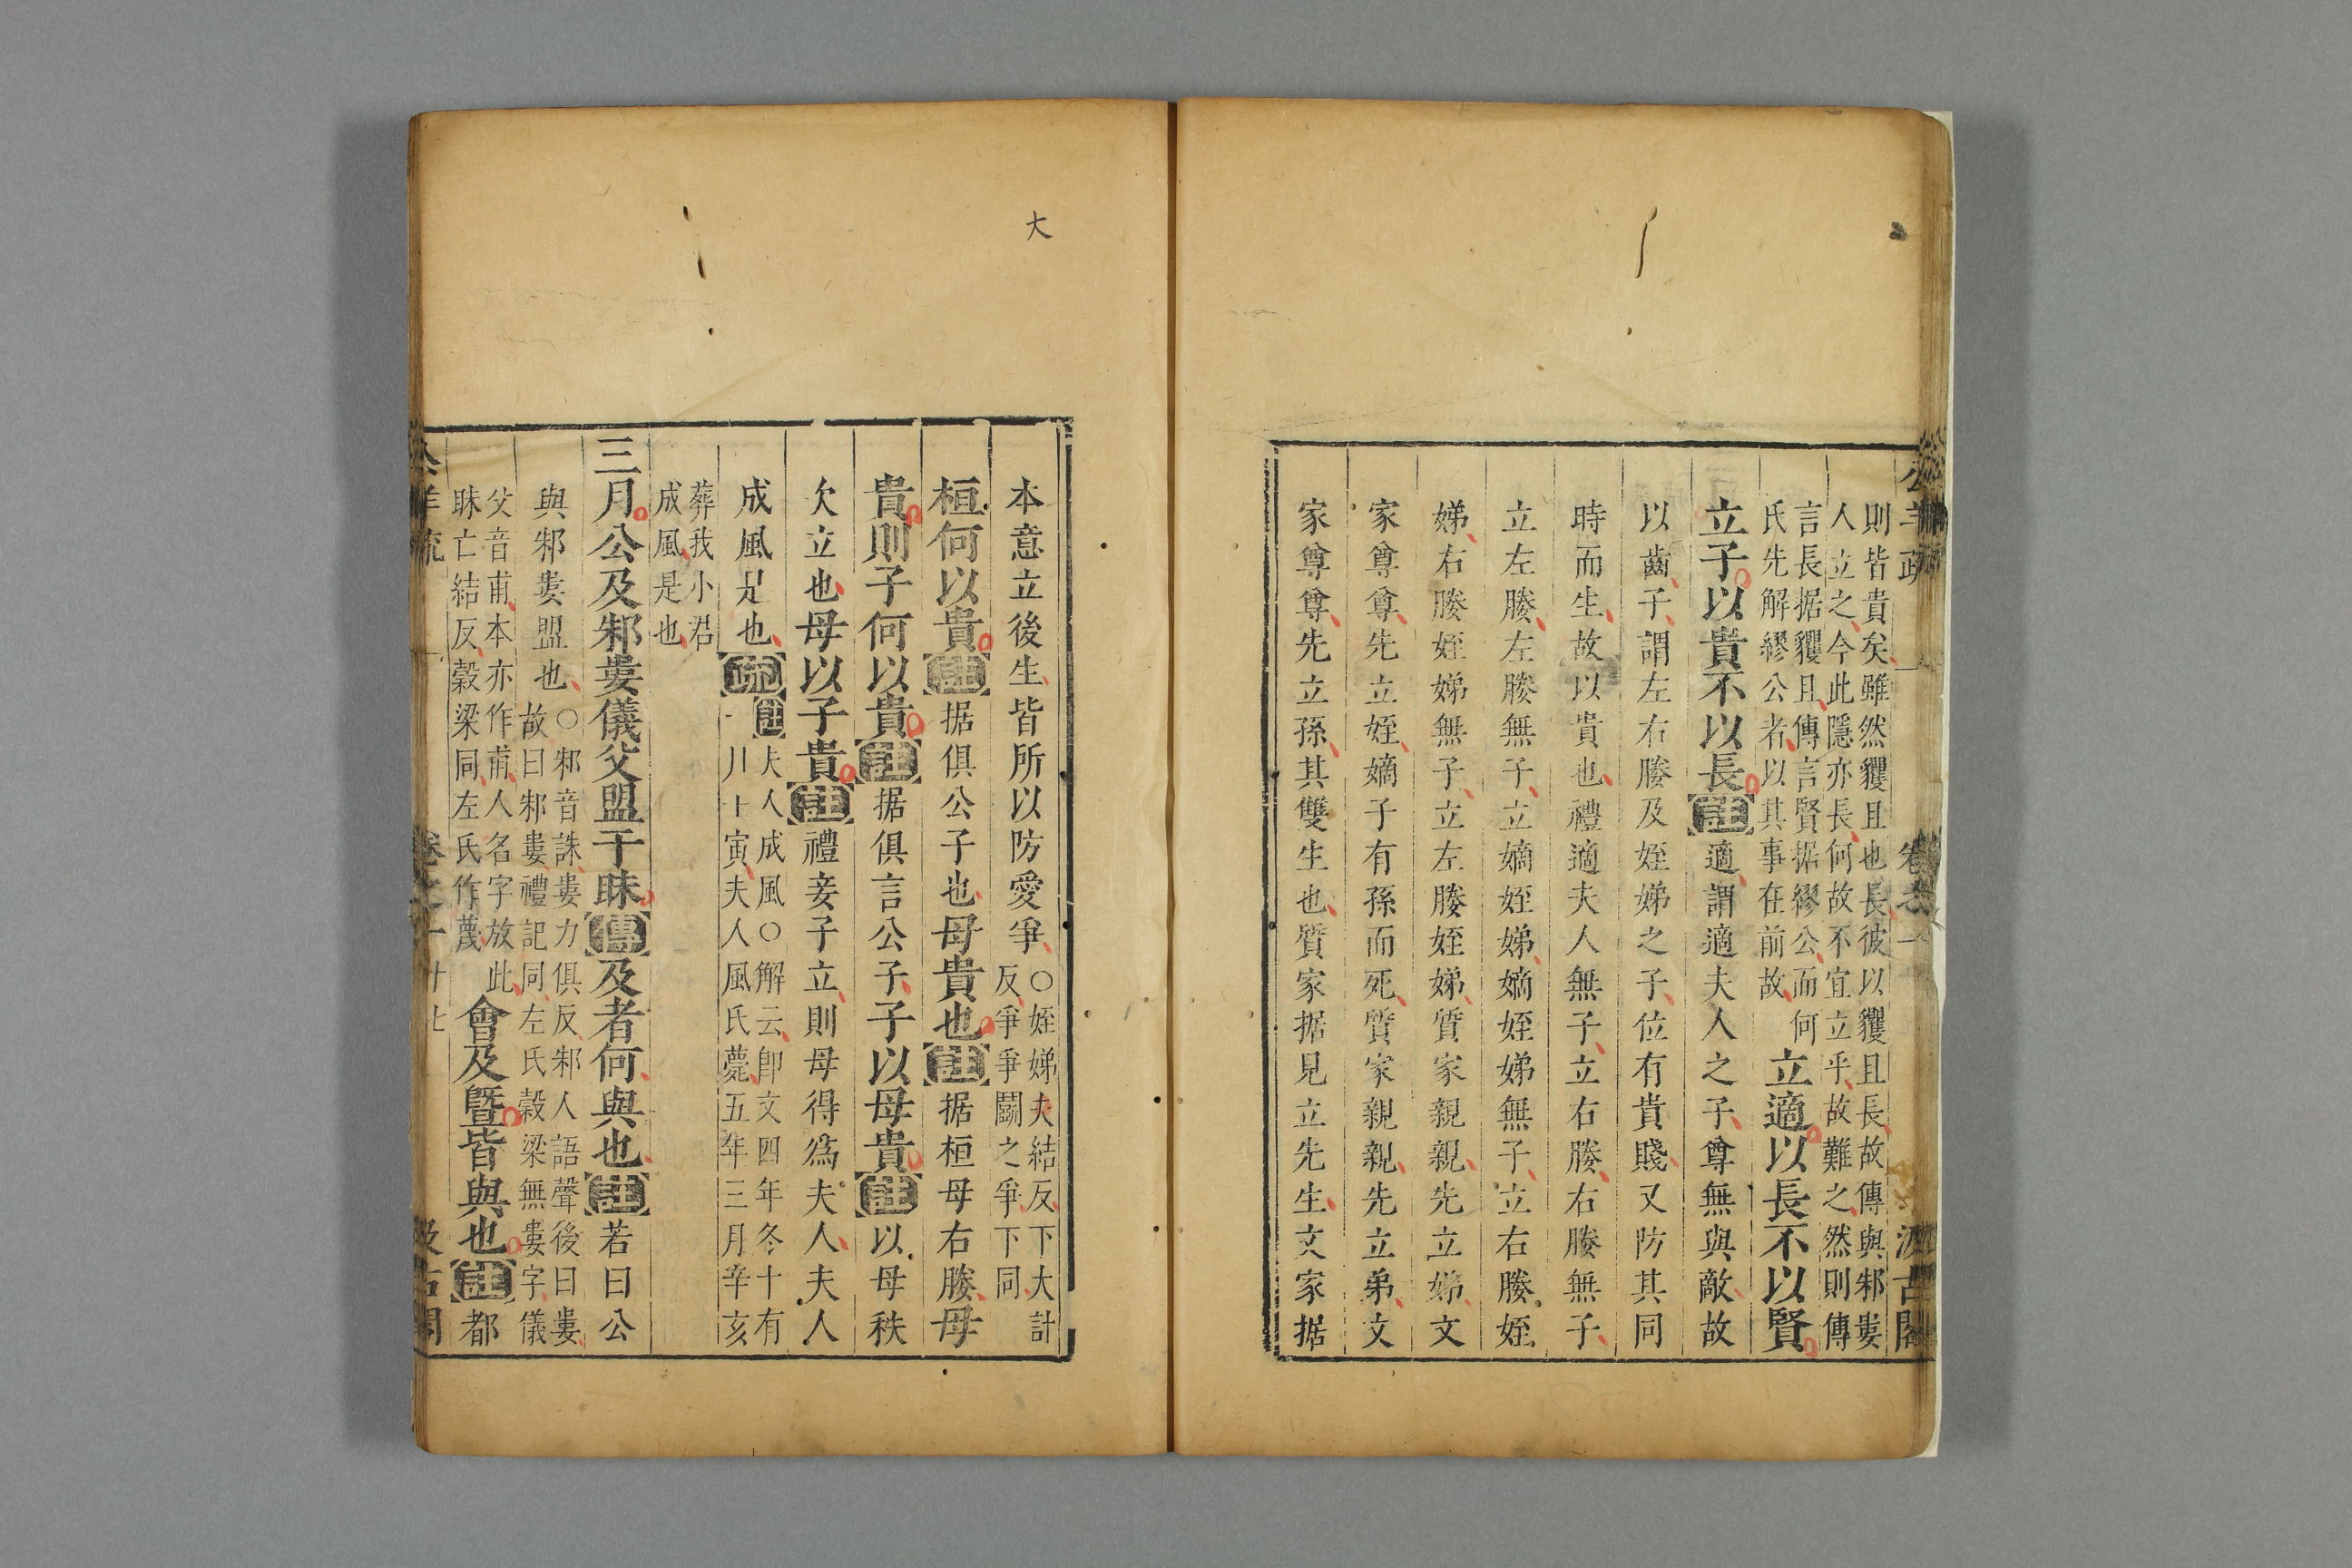 則皆貴矣雖然貜且也長彼以貜且長故傳與邾婁
人立之今此隱亦長何故不宜立乎故難之然則傳
言長据貜且傳言賢据繆公而何
氏先解繆公者以其事在前故
立適以長不以賢
立子以貴不以長註適謂適夫人之子尊無與敵故
以齒子謂左右媵及姪娣之子位有貴賤又防其同
時而生故以貴也禮適夫人無子立右媵右媵無子
立左媵左媵無子立嫡姪娣嫡姪娣無子立右媵姪
娣右媵姪娣無子立左媵姪娣質家親親先立娣文
家尊尊先立姪嫡子有孫而死質家親親先立弟文
家尊尊先立孫其雙生也質家据見立先生文家据
大
本意立後生皆所以防愛爭
○姪娣夫結反下大計
反爭爭鬬之爭下同
桓何以貴註据俱公子也母貴也註据桓母右媵母
貴則子何以貴註据俱言公子子以母貴註以母秩
次立也母以子貴註禮妾子立則母得爲夫人夫人
成風是也疏
註夫人成風○解云卽文四年冬十有
一月壬寅夫人風氏薨五年三月辛亥
葬我小君
成風是也
三月公及邾婁儀父盟于眛傳及者何與也註若曰公
與邾婁盟也
○邾音誅婁力俱反邾人語聲後曰婁
故曰邾婁禮記同左氏穀梁無婁字儀
父音甫本亦作甫人名字放此
眛亡結反穀梁同左氏作蔑
會及暨皆與也註都